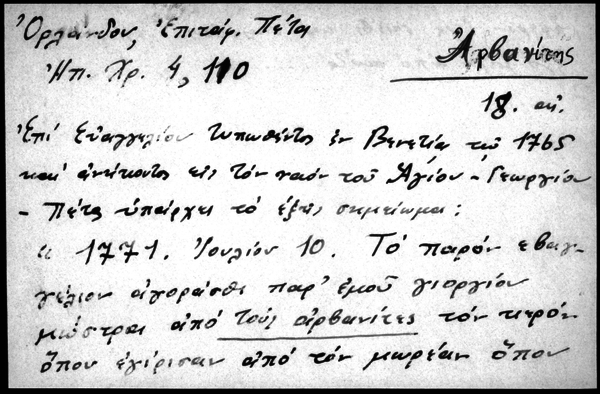 Ὀρλάνδου, Ἐπιτάφ. Πέτα
Ἠπ. Χρ. 4, 110
Ἀρβανίτης
18. αἰ.
Ἐπί Εὐαγγελίου τυπωθέντος ἐν Βενετίᾳ τῷ 1765
καί ἀνήκοντος εἰς τόν ναόν τοῦ Ἁγίου - Γεωργίου
- Πέτα ὑπάρχει τό ἑξῆς σημείωμα:
" 1771. Ἰουλίου 10. Τό παρόν εβαγ-
γέλιον ἀγοράσθι παρ' ἐμοῦ γιοργίου
ἀπό τούς ἀρβανίτες τόν κερόν
ὅπου ἐγίρισαν ἀπό τόν μωρέαν ὅπου